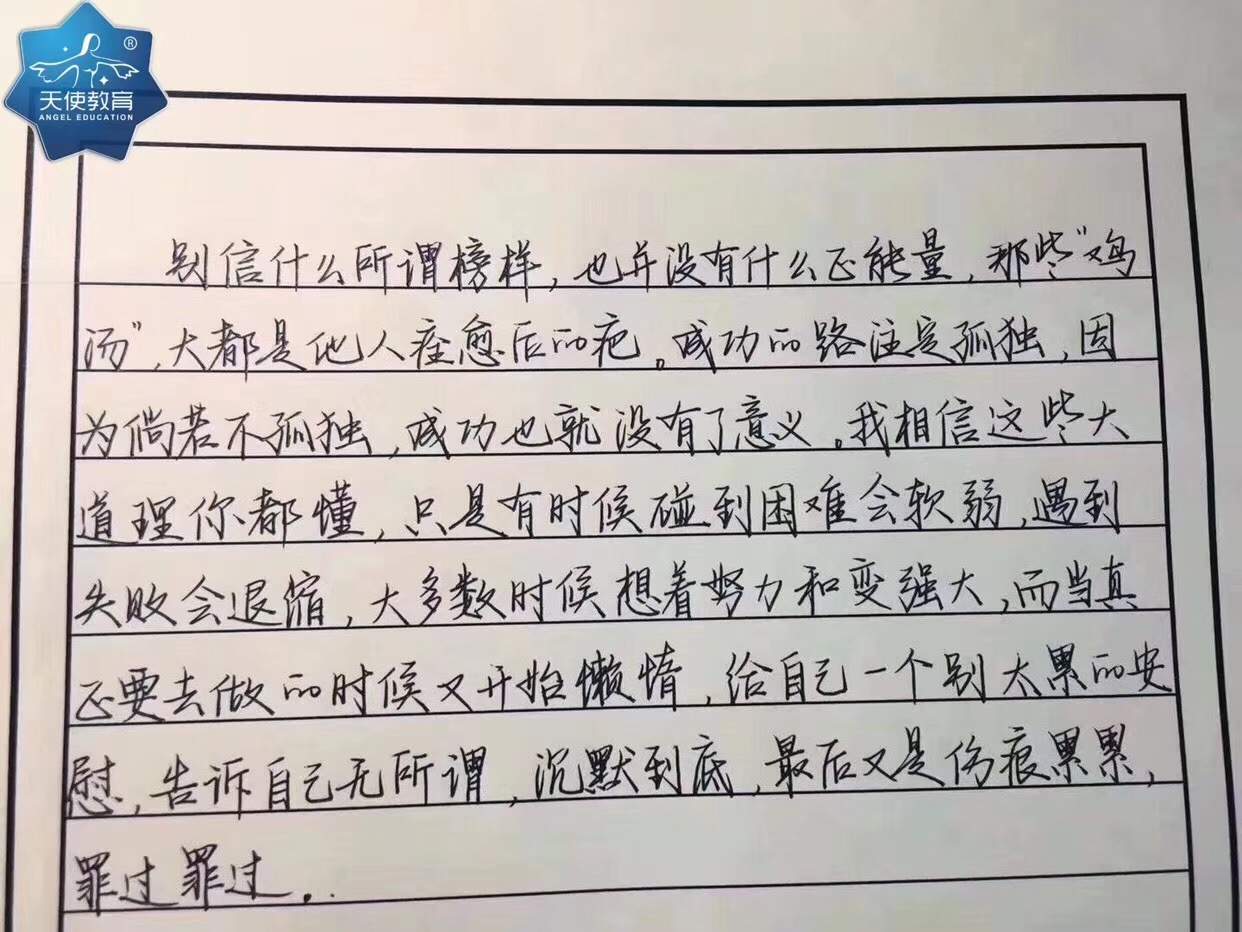 天使教育
ANGEL EDUCATION
®
别信什么所谓榜样,也并没有什么正能量,那些"鸡
汤",大都是他人痊愈后的疤。成功的路注定孤独,因
为倘若不孤独,成功也就没有了意义。我相信这些大
道理你都懂,只是有时候碰到困难会软弱,遇到
失败会退缩,大多数时候想着努力和变强大,而当真
正要去做的时候又开始懒惰,给自己一个别太累的安
慰,告诉自己无所谓,沉默到底,最后又是伤痕累累,
罪过罪过...